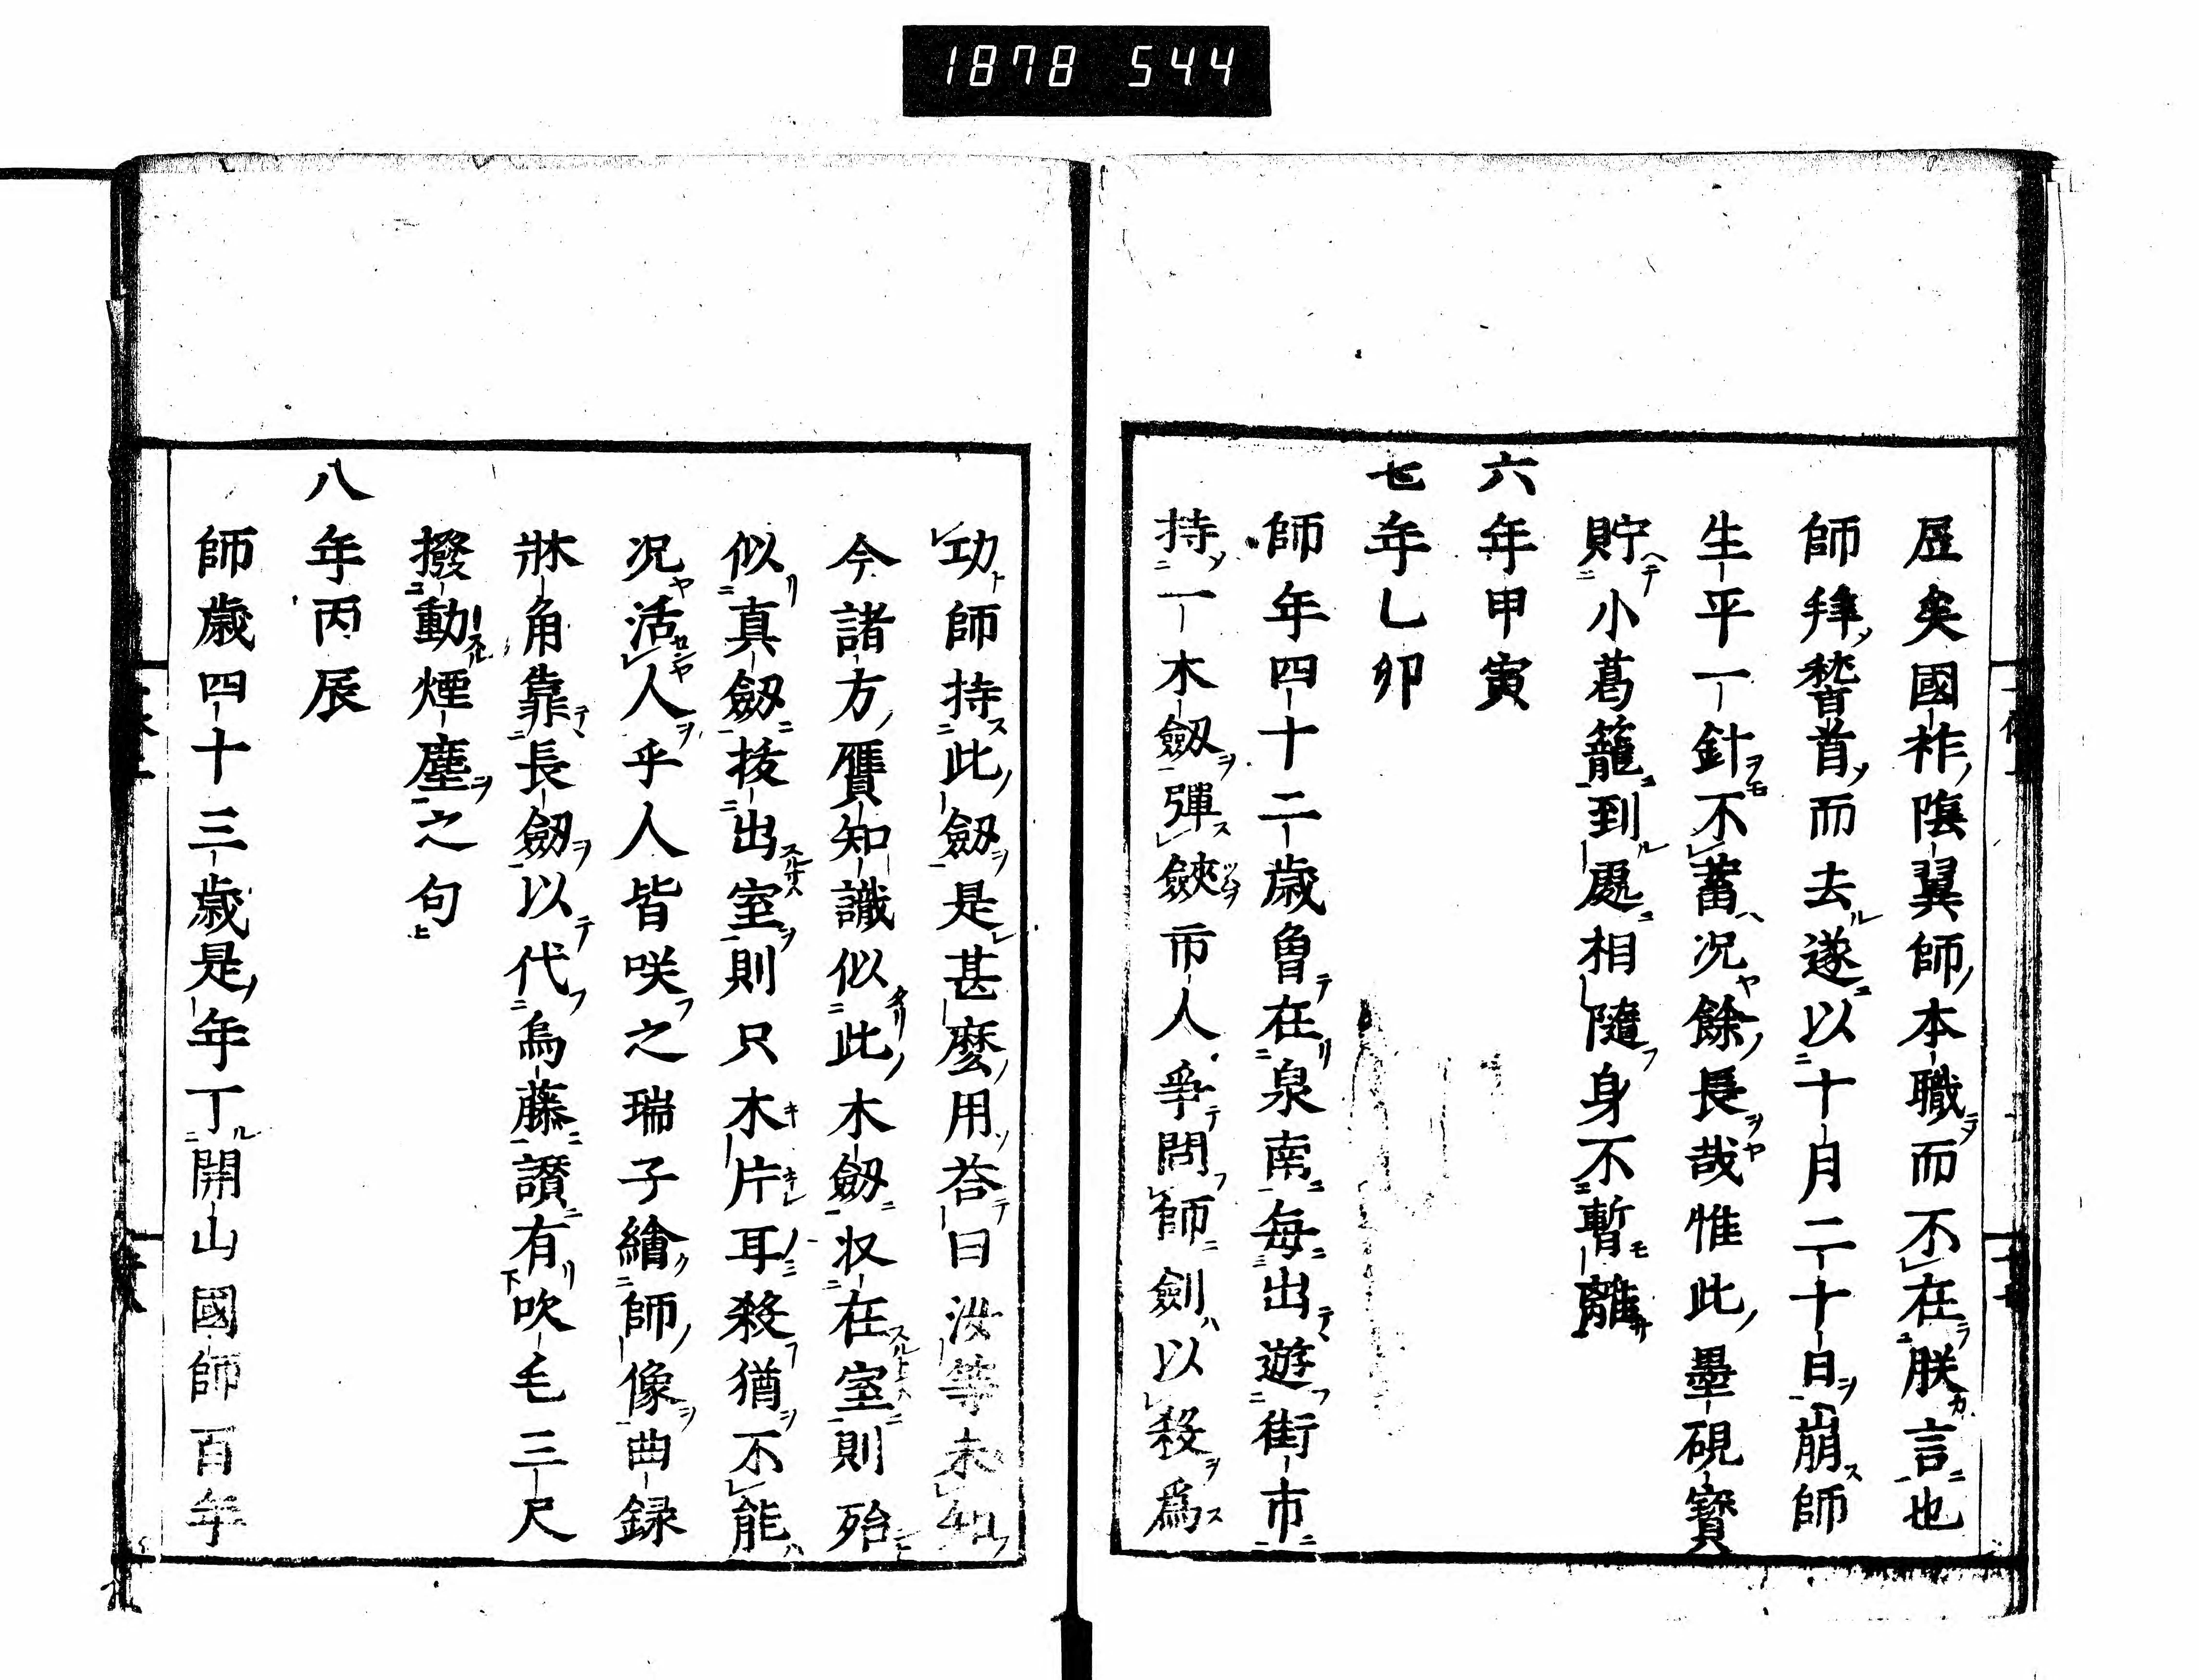 1878 544
屋矣國祚陰翼師本職而不在朕言也
師拝嵆首而去遂以十月二十日崩師
生平一針不蓄况餘長哉惟此墨硯寳
貯小葛籠到處相隨身不暫離
六年甲寅
七年乙卯
師年四十二歳魯在泉南毎出遊街市
持一木劔彈鋏市人爭問師劍以殺爲
功師持此劔是甚麼用荅曰汝等未知
今諸方贋知識似此木劔収在室則殆
似真劔抜出室則只木片耳殺猶不能
况活人乎人皆咲之瑞子繪師像曲録
牀角靠長劔以代烏藤讃有吹毛三尺
撥動煙塵之句
八年丙辰
師歳四十三歳是年丁開山國師百年